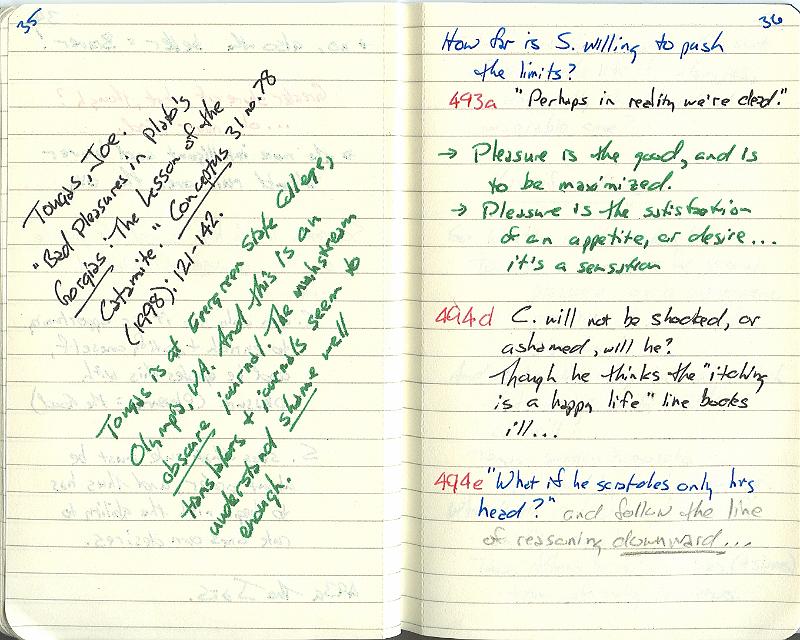 35
Tougas, Joe.
"Bad Pleasures in Plato's
Gorgias: The Lesson of the
Catamite." Conceptus 31 no. 78
(1998): 121-142.
Tougas is at Evergreen State College,
Olympia, WA. And this is an
obscure journal. The mainstream
translators & journals seem to
understand shame well
enough.
36
How far is S. willing to push
the limits?
493a "Perhaps in reality we're dead."
→ Pleasure is the good, and is
to be maximized.
→ Pleasure is the satisfaction
of an appetite, or desire...
it's a sensation
494d C. will not be shocked, or
ashamed, will he?
Though he thinks the "itching
is a happy life" line
ill...
494e "What if he scratches only his
head?" and follow the line
of reasoning downward...